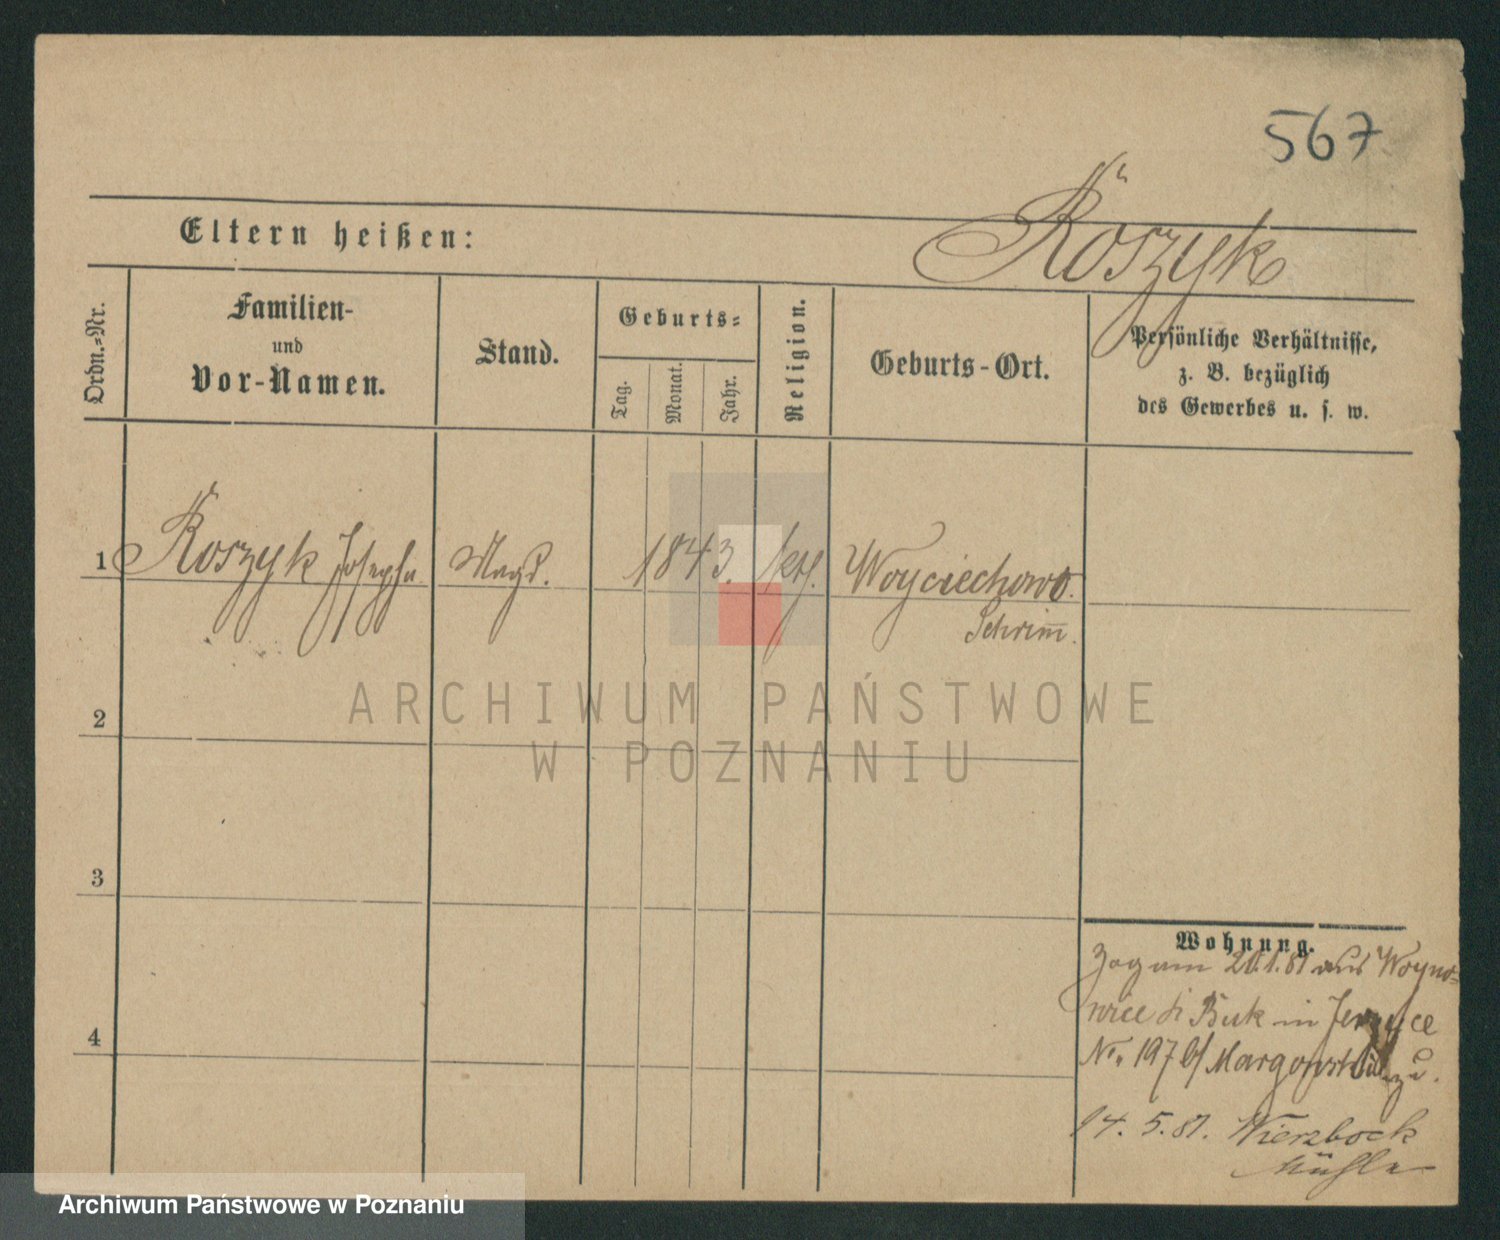 567
Roszyk
Eltern heißen:
Ordn.-Nr.
Familien-
und
Vor-Namen.
Stand.
Geburts-
Tag.
Monat.
Jahr.
Religion.
Geburts-Ort.
Persönliche Verhältnisse,
z. B. bezüglich
des Gewerbes u. s. w.
1 Roszyk Josepha Magd. 1843. kth. Woyciechowo.
Schrimm.
ARCHIWUM PAŃSTWOWE
W POZNANIU
2
3
4
Wohnung.
Zog am 20.1.81 aus Woyno-
wice Buk in Jerzyce
No. 197 b/ zu.
14. 5. 81. Wierzbock
Mühle
Archiwum Państwowe w Poznaniu